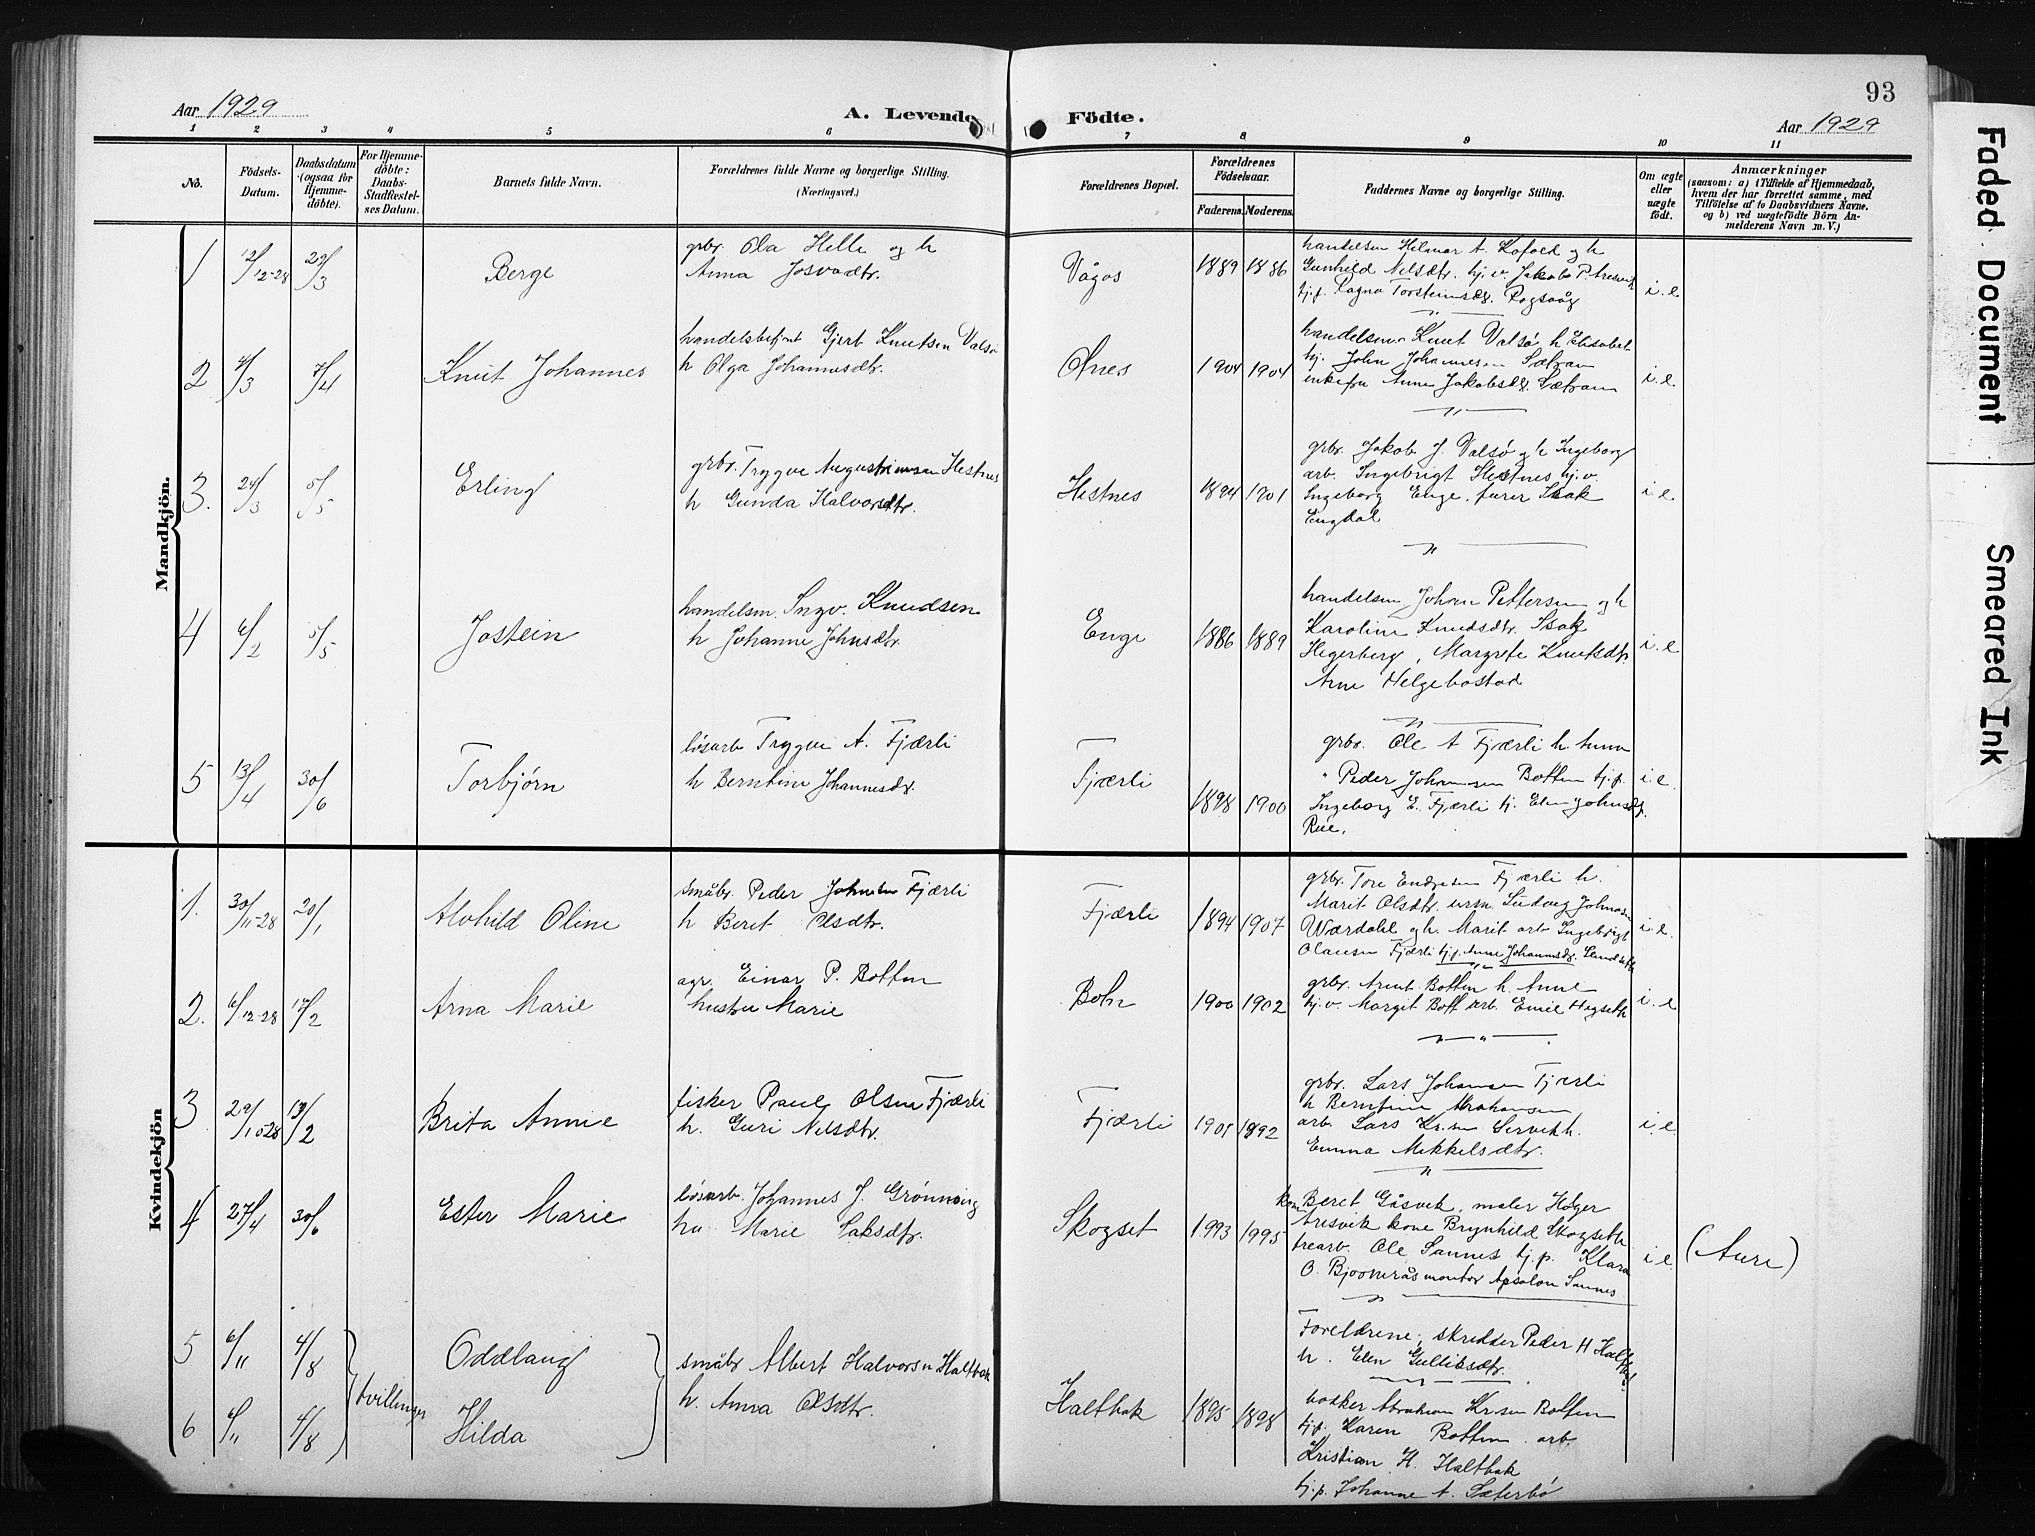 93
Aar 1929
A. Levende Födte.
Aar 1929
1 2 3 4 5 6 7 8 9 10 11
No.
Födsels-
Datum.
Daabsdatum
(ogsaa for
Hjemme-
döbte).
For Hjemme-
döbte:
Daabs-
Stadfæstel-
ses Datum.
Barnets fulde Navn.
Forældrenes fulde Navne og borgerlige Stilling.
(Næringsvei.)
Forældrenes Bopæl.
Forældrenes
Födselsaar.
Faderens. Moderens.
Faddernes Navne og borgerlige Stilling.
Om ægte
eller
uægte
födt.
Anmærkninger
(saasom: a) i Tilfælde af Hjemmedaab,
hvem der har forrettet samme, med
Tilföielse af to Daabsvidners Navne.
og b) ved uegtefödte Börn An-
melderens Navn m. V.)
Mandkjön.
1 12/12-28 29/3 Berge
gbr. Ola Helle og h
Anna Josvadtr.
Vågos 1889 1886
handelsm Helmar A. Kofoed og h
Gunhild Nilsdtr. tj. v. Jakob P. Aresvik
tj.p. Ragna Torsteinsdtr.
i. e
2 4/3 7/4 Knut Johannes
handelsbetjnt Gjert Knutsen Valsø
h Olga Johannesdtr.
Ønes 1904 1904
handelsm. Knut Valsø h Elisabet
tj. John Johannesen Sætran
enkefru Anne Jakobsdtr. Sætran
i. e.
3. 24/3 5/5 Erling
grbr. Trygve Augustinusen Hestnes
h Gunda Halvorsdtr.
Hestnes 1894 1901
grbr. Jakob J. Valsø og h Ingeborg
arb. Ingebrigt Hestnes tj. v.
Ingeborg Enge, furer Isak
Engdal
i. e.
4 6/2 5/5 Jostein
handelsm. Ingv. Knudsen
h Johanne Johnsdtr.
Enge 1886 1889
handelsm Johan Pettersen og h
Karoline Knudsdtr. Isak
Hegerberg, Margrete Knutsdtr
Arne Helgebostad
i. e
5 13/4 30/6 Torbjørn
løsarb Trygve A. Fjærli
h Berntine Johannesdtr.
Fjærli 1898 1900
grbr. Ole A Fjærli h. Anna
" Peder Johansen Botten tj.p.
Ingeborg E. Fjærli tj. Elen Johnsdtr.
Rue.
i. e.
Kvindekjön
1. 30/11-28 20/1 Alvhild Oline
småbr. Peder Johnsen Fjærli
h Beret Olsdtr.
Fjærli 1894 1907
grbr. Tore Endresen Fjærli h.
Marit Olsdtr. urm. Ludvig Johnsen
Wærdahl og h. Marit arb Ingebrigt
Olausen Fjærli tj.p. Anne Johannsdtr.
i. e.
2. 6/12-28 17/2 Arna Marie
agr. Einar P. Botten
hustru Marie
Botn 1900 1902
grbr. Arnt Botten h. Anne
tj. v. Margit Bott arb. Emil Hegseth
i. e
3 29/10-28 13/2 Brita Annie
fisker Paul Olsen Fjærli
h. Guri Nilsdtr.
Fjærli 1901 1892
grbr. Lars Johansen Fjærli
h Berntine Abrahamsen
arb. Lars Kr.sen h.
Emma Mikkelsdtr.
i. e.
4 27/4 30/6 Ester Marie
løsarb. Johannes J. Grønning
hu Marie Isaksdtr.
Skogset 1993 1995
kone Beret Gåsvik, maler Holger
Aresvik kone Brynhild Skogseth
trearb. Ole Sannes tj. p. Klara
O. Bjoonrås montør Apsolon Sannes.
i. e.
(Aure)
5 6/11 4/8 Oddlaug
6 6/11 4/8 Hilda
tvillinger
småbr Albert Halvorsn Haltbak
h. Anna Olsdtr.
Haltbak 1895 1898
Foreldrene, skredder Peder H Haltbak
h. Elen Gulliksdtr.
Abraham Kr.sen Botten
tj.p. Karen Botten arb.
Kristian H. Haltbak
tj.p. Johanne A. Sæterbø
Faded Document
Smeared Ink